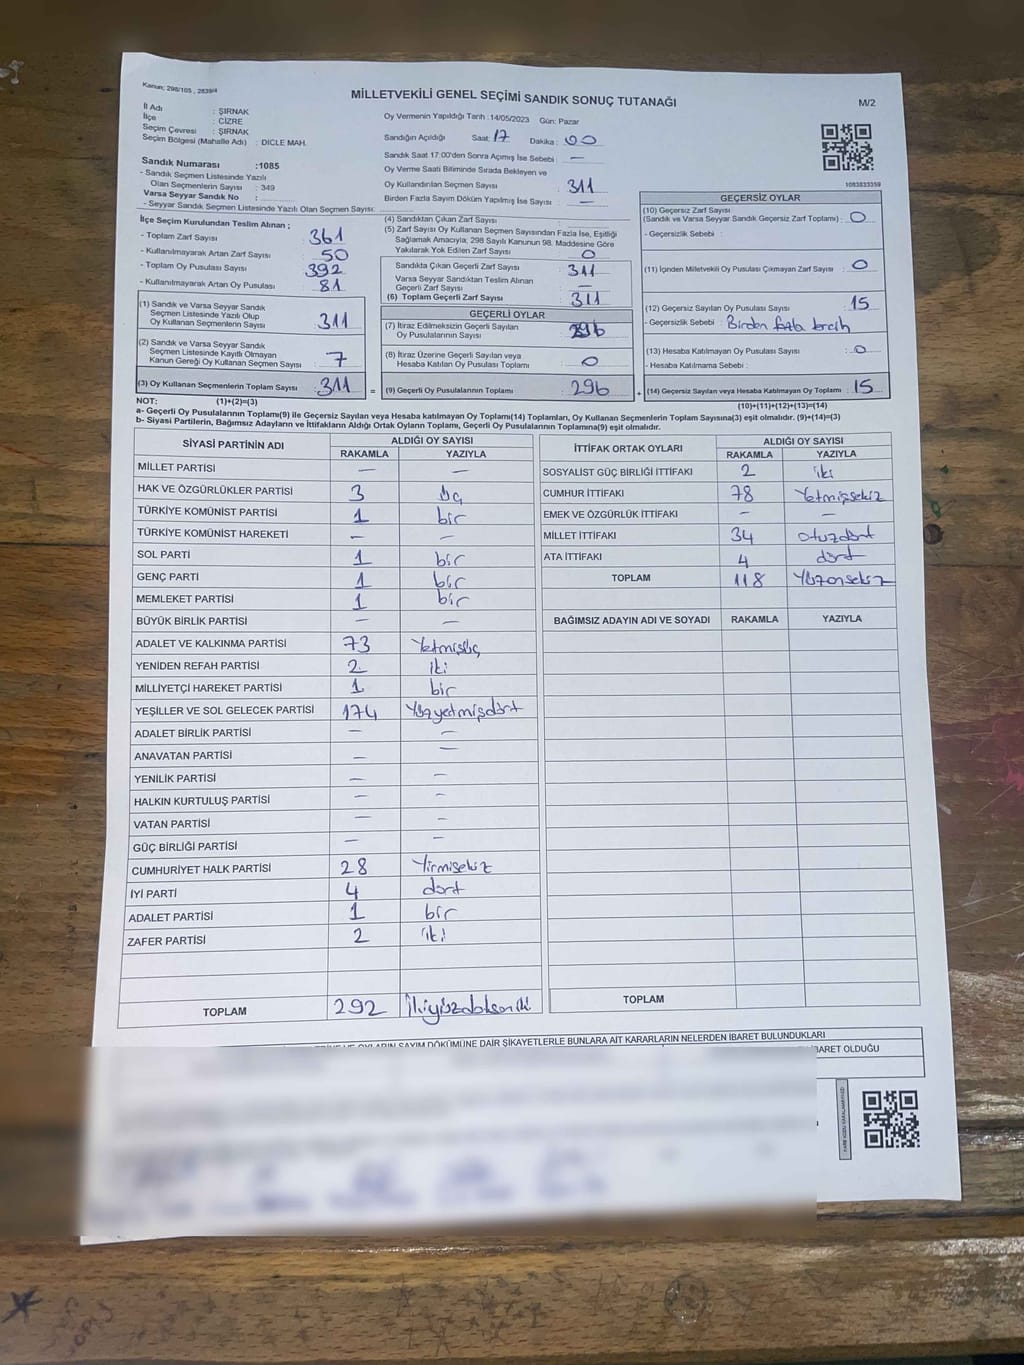 Kanun; 298/105 , 2839/4
MİLLETVEKİLİ GENEL SEÇİMİ SANDIK SONUÇ TUTANAĞI
M/2
İl Adı : ŞIRNAK
İlçe : CİZRE
Seçim Çevresi : ŞIRNAK
Seçim Bölgesi (Mahalle Adı) : DICLE MAH.
Sandık Numarası :1085
- Sandık Seçmen Listesinde Yazılı
Olan Seçmenlerin Sayısı : 349
Varsa Seyyar Sandık No :
- Seyyar Sandık Seçmen Listesinde Yazılı Olan Seçmen Sayısı:
Oy Vermenin Yapıldığı Tarih :14/05/2023 Gün: Pazar
Sandığın Açıldığı Saat: 17 Dakika: 00
Sandık Saat 17:00'den Sonra Açılmış İse Sebebi : —
Oy Verme Saati Bitiminde Sırada Bekleyen ve
Oy Kullandırılan Seçmen Sayısı : 311
Birden Fazla Sayım Döküm Yapılmış İse Sayısı : —
1083833359
İlçe Seçim Kurulundan Teslim Alınan ;
- Toplam Zarf Sayısı : 361
- Kullanılmayarak Artan Zarf Sayısı : 50
- Toplam Oy Pusulası Sayısı : 392
- Kullanılmayarak Artan Oy Pusulası : 81
(1) Sandık ve Varsa Seyyar Sandık
Seçmen Listesinde Yazılı Olup
Oy Kullanan Seçmenlerin Sayısı : 311
(2) Sandık ve Varsa Seyyar Sandık
Seçmen Listesinde Kayıtlı Olmayan
Kanun Gereği Oy Kullanan Seçmen Sayısı : 7
(3) Oy Kullanan Seçmenlerin Toplam Sayısı : 311
(1)+(2)=(3)
(4) Sandıktan Çıkan Zarf Sayısı :
(5) Zarf Sayısı Oy Kullanan Seçmen Sayısından Fazla İse, Eşitliği
Sağlamak Amacıyla; 298 Sayılı Kanunun 98. Maddesine Göre
Yakılarak Yok Edilen Zarf Sayısı : 0
Sandıkta Çıkan Geçerli Zarf Sayısı : 311
Varsa Seyyar Sandıktan Teslim Alınan
Geçerli Zarf Sayısı : —
(6) Toplam Geçerli Zarf Sayısı : 311
GEÇERLİ OYLAR
(7) İtiraz Edilmeksizin Geçerli Sayılan
Oy Pusulalarının Sayısı : 296
(8) İtiraz Üzerine Geçerli Sayılan veya
Hesaba Katılan Oy Pusulası Toplamı : 0
= (9) Geçerli Oy Pusulalarının Toplamı : 296
GEÇERSİZ OYLAR
(10) Geçersiz Zarf Sayısı
(Sandık ve Varsa Seyyar Sandık Geçersiz Zarf Toplamı) : 0
- Geçersizlik Sebebi :
(11) İçinden Milletvekili Oy Pusulası Çıkmayan Zarf Sayısı : 0
(12) Geçersiz Sayılan Oy Pusulası Sayısı : 15
- Geçersizlik Sebebi : Birden fazla tercih
(13) Hesaba Katılmayan Oy Pusulası Sayısı : 0
- Hesaba Katılmama Sebebi :
+ (14) Geçersiz Sayılan veya Hesaba Katılmayan Oy Toplamı : 15
(10)+(11)+(12)+(13)=(14)
NOT:
a- Geçerli Oy Pusulalarının Toplamı(9) ile Geçersiz Sayılan veya Hesaba katılmayan Oy Toplamı(14) Toplamları, Oy Kullanan Seçmenlerin Toplam Sayısına(3) eşit olmalıdır. (9)+(14)=(3)
b- Siyasi Partilerin, Bağımsız Adayların ve İttifakların Aldığı Ortak Oyların Toplamı, Geçerli Oy Pusulalarının Toplamına(9) eşit olmalıdır.
SİYASİ PARTİNİN ADI ALDIĞI OY SAYISI
RAKAMLA YAZIYLA
MİLLET PARTİSİ — —
HAK VE ÖZGÜRLÜKLER PARTİSİ 3 üç
TÜRKİYE KOMÜNİST PARTİSİ 1 bir
TÜRKİYE KOMÜNİST HAREKETİ — —
SOL PARTİ 1 bir
GENÇ PARTİ 1 bir
MEMLEKET PARTİSİ 1 bir
BÜYÜK BİRLİK PARTİSİ — —
ADALET VE KALKINMA PARTİSİ 73 Yetmişüç
YENİDEN REFAH PARTİSİ 2 iki
MİLLİYETÇİ HAREKET PARTİSİ 1 bir
YEŞİLLER VE SOL GELECEK PARTİSİ 174 Yüzyetmişdört
ADALET BİRLİK PARTİSİ — —
ANAVATAN PARTİSİ — —
YENİLİK PARTİSİ — —
HALKIN KURTULUŞ PARTİSİ — —
VATAN PARTİSİ — —
GÜÇ BİRLİĞİ PARTİSİ — —
CUMHURİYET HALK PARTİSİ 28 Yirmisekiz
İYİ PARTİ 4 dört
ADALET PARTİSİ 1 bir
ZAFER PARTİSİ 2 iki
TOPLAM 292 İkiyüzdoksaniki
İTTİFAK ORTAK OYLARI ALDIĞI OY SAYISI
RAKAMLA YAZIYLA
SOSYALİST GÜÇ BİRLİĞİ İTTİFAKI 2 iki
CUMHUR İTTİFAKI 78 Yetmişsekiz
EMEK VE ÖZGÜRLÜK İTTİFAKI — —
MİLLET İTTİFAKI 34 otuzdört
ATA İTTİFAKI 4 dört
TOPLAM 118 Yüzonsekiz
BAĞIMSIZ ADAYIN ADI VE SOYADI RAKAMLA YAZIYLA
TOPLAM
OYLARIN SAYIM DÖKÜMÜNE DAİR ŞİKAYETLERLE BUNLARA AİT KARARLARIN NELERDEN İBARET BULUNDUKLARI
İBARET OLDUĞU